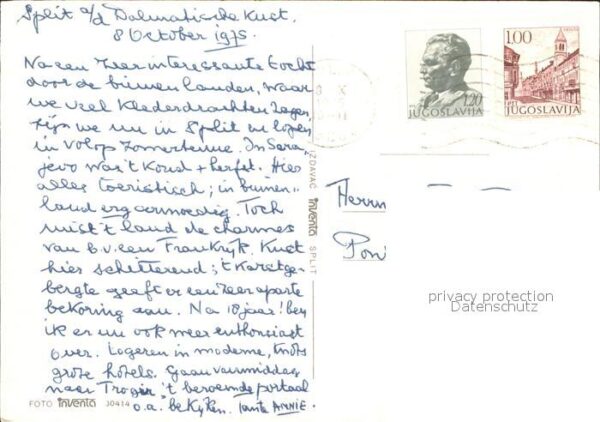 Split a/d Dalmatische Kust.
8 October 1975.
Na een zeer interessante tocht
door de binnenlanden, waar
we veel Klederdrachten zagen,
zijn we nu in Split en lopen
in volop zomertenue. In Sera,
jevo was 't Koud + herfst. Hier
alles toeristisch; in binnen„
land erg armoedig. Toch
mist 't land de charmes
van b.v. een Frankrijk. Kust
hier schitterend; 't Karstge-
bergte geeft er een zeer aparte
bekoring aan. Na 10 jaar! ben
ik er nu ook meer enthousiast
over. Logeren in moderne,
grote hotels. Gaan vanmiddag
naar Trogir, 't beroemde portaal
o.a. bekijken. tante ANNIE.
FOTO inventa 30414
IZDAVAC inventa SPLIT
1.20
JUGOSLAVIJA
1.00
JUGOSLAVIJA
Herrn
privacy protection
Datenschutz